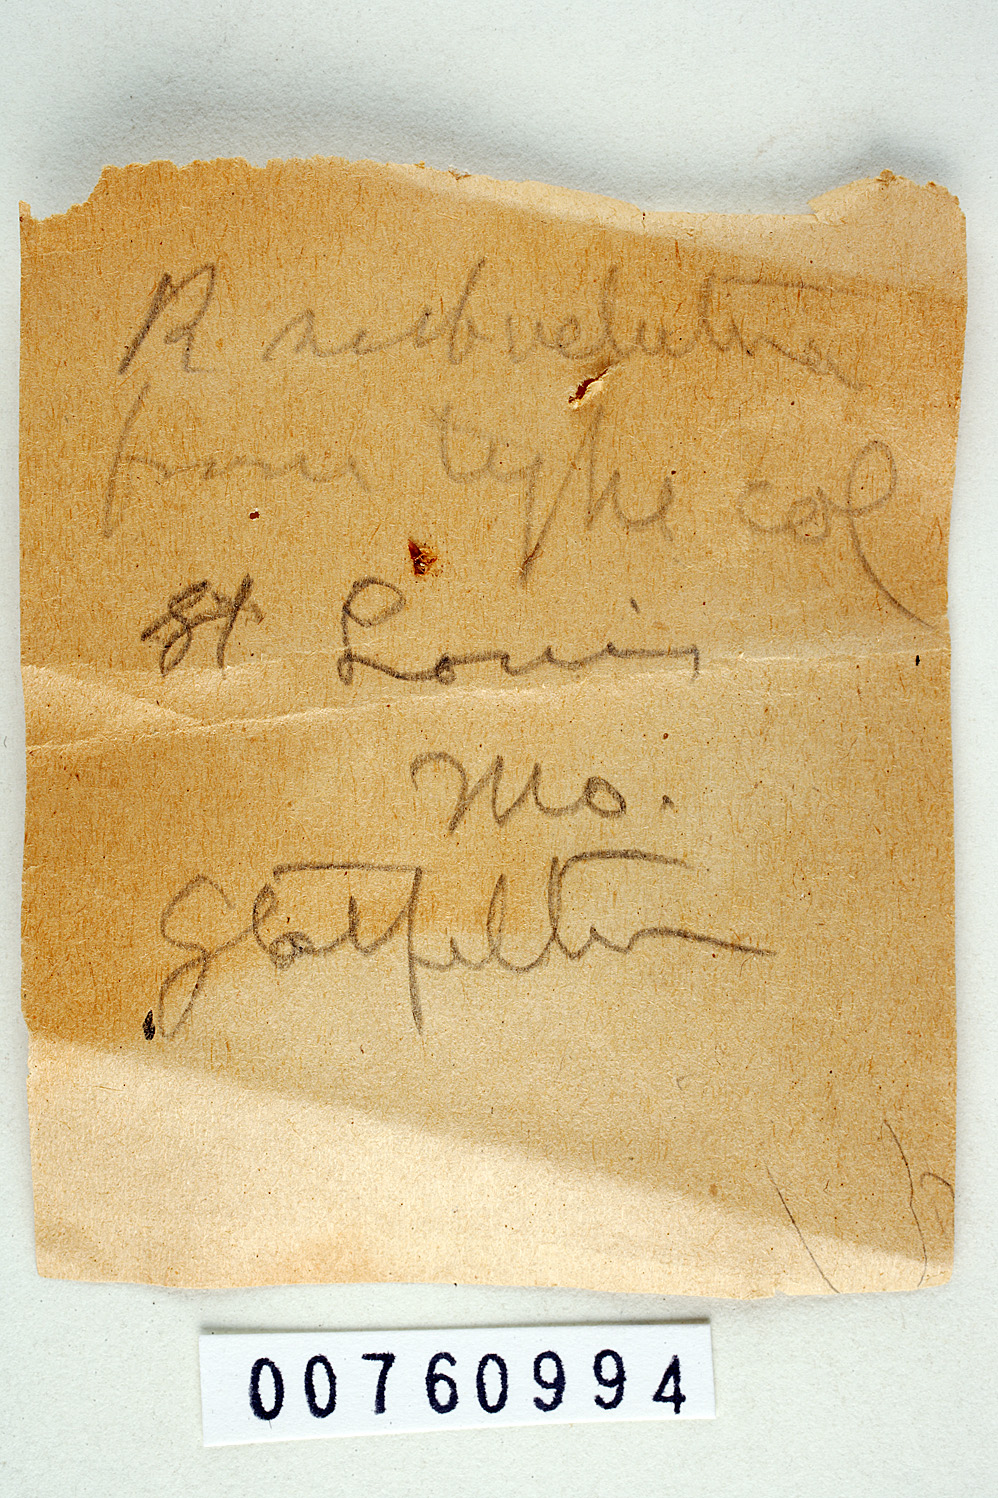 R subvelutina
from type col
St Louis
Mo.
Glatfelter
00760994